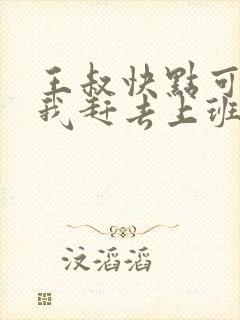 王叔快點可
我赶去上班
汶滔滔